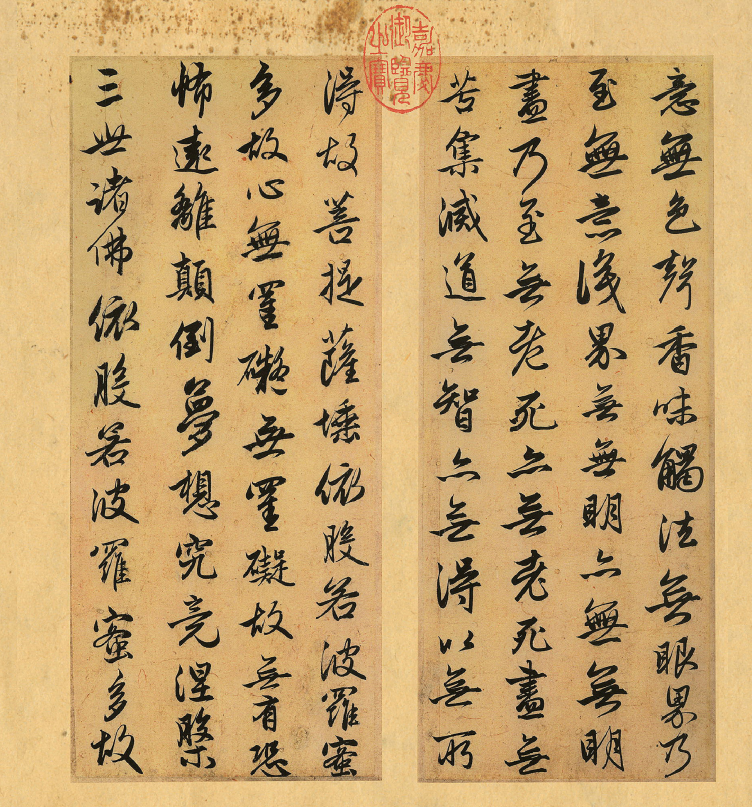 意無色聲香味觸法無眼界乃
至無意識界無無明亦無無明
盡乃至無老死亦無老死盡無
苦集滅道無智亦無得以無所
得故菩提薩埵依般若波羅蜜
多故心無罣礙無罣礙故無有恐
怖遠離顛倒夢想究竟涅槃
三世諸佛依般若波羅蜜多故
嘉慶
御覽
之寶